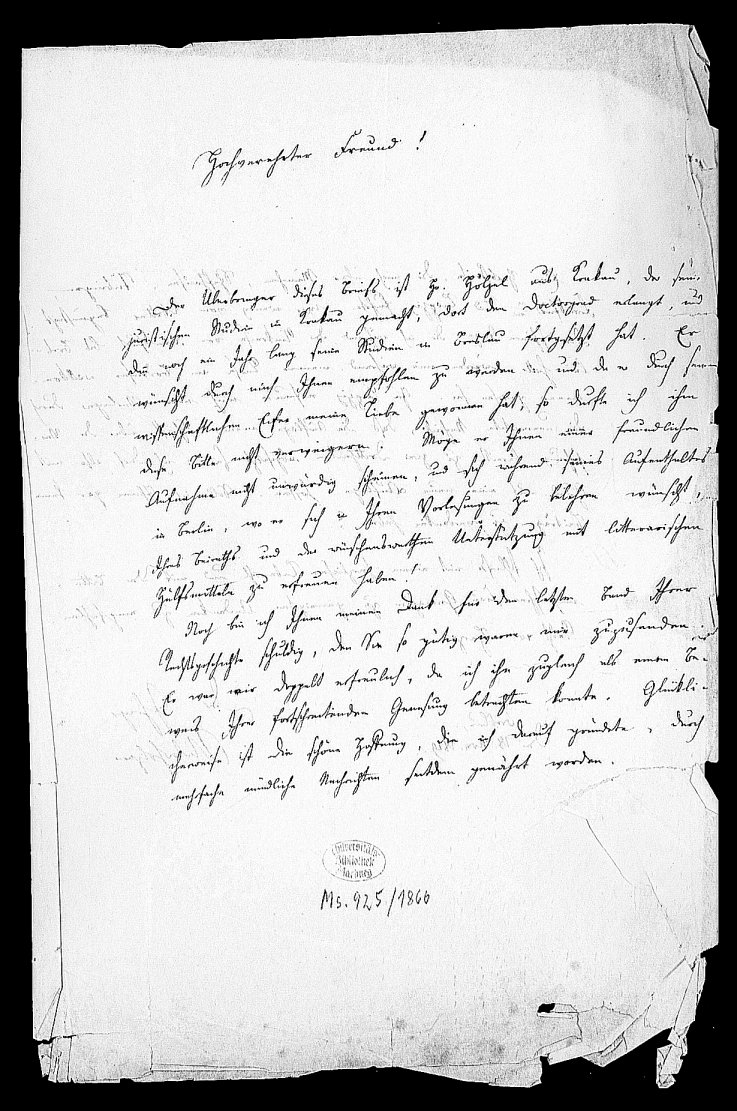 Hochverehrter Freund!
Der Überbringer dieses Briefs ist Hr. Hölzel aus Krakau, der seine
juristischen Studien in Krakau gemacht, dort den Doctorgrad erlangt, und
dann noch ein Jahr lang seine Studien in Breslau fortgesetzt hat. Er
wünscht durch mich Ihnen empfohlen zu werden und da er durch seinen
wissenschaftlichen Eifer meine Liebe gewonnen hat, so durfte ich ihm
diese Bitte nicht verweigern. Möge er Ihnen einer freundlichen
Aufnahme nicht unwürdig scheinen, und sich während seines Aufenthaltes
in Berlin, wo er sich in Ihren Vorlesungen zu belehren wünscht,
Ihres Beiraths und der wünschenswerthen Unterstützung mit litterarischen
Hülfsmitteln zu erfreuen haben!
Noch bin ich Ihnen meinen Dank für den letzten Band Ihrer
Rechtsgeschichte schuldig, den Sie so gütig waren, mir zuzusenden.
Er war mir doppelt erfreulich, da ich ihn zugleich als einen Be-
weis Ihrer fortschreitenden Genesung betrachten konnte. Glückli-
cherweise ist die schöne Hoffnung, die ich darauf gründete, durch
mehrfache mündliche Nachrichten seitdem genährt worden.
Universitäts
Bibliothek
Marburg
Ms. 925/1866